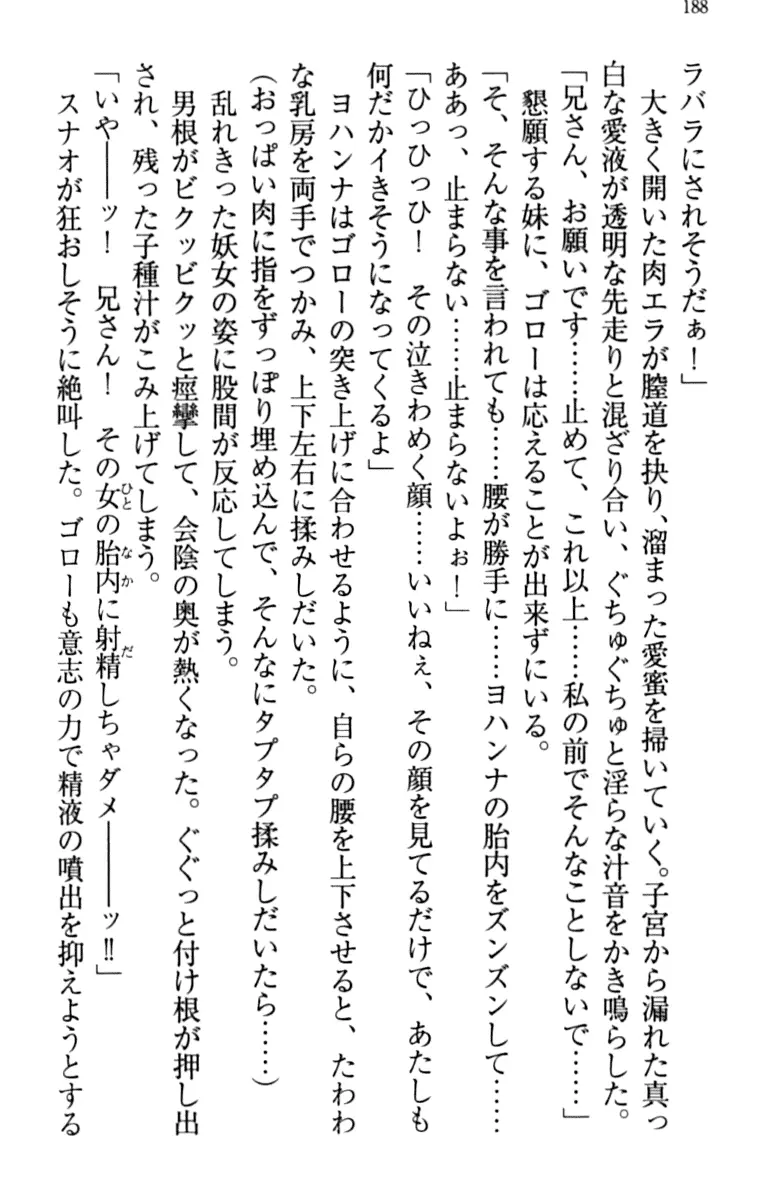 188
ラバラにされそうだぁ！」
　大きく開いた肉エラが膣道を抉り、溜まった愛蜜を掃いていく。子宮から漏れた真っ
白な愛液が透明な先走りと混ざり合い、ぐちゅぐちゅと淫らな汁音をかき鳴らした。
「兄さん、お願いです……止めて、これ以上……私の前でそんなことしないで……」
　懇願する妹に、ゴローは応えることが出来ずにいる。
「そ、そんな事を言われても……腰が勝手に……ヨハンナの胎内をズンズンして……
ああっ、止まらない……止まらないよぉ！」
「ひっひっひ！　その泣きわめく顔……いいねぇ、その顔を見てるだけで、あたしも
何だかイきそうになってくるよ」
　ヨハンナはゴローの突き上げに合わせるように、自らの腰を上下させると、たわわ
な乳房を両手でつかみ、上下左右に揉みしだいた。
（おっぱい肉に指をずっぽり埋め込んで、そんなにタプタプ揉みしだいたら……）
　乱れきった妖女の姿に股間が反応してしまう。
　男根がビクッビクッと痙攣して、会陰の奥が熱くなった。ぐぐっと付け根が押し出
され、残った子種汁がこみ上げてしまう。
「いや――ッ！　兄さん！　その女ひとの胎内なかに射精だしちゃダメ―――ッ‼」
　スナオが狂おしそうに絶叫した。ゴローも意志の力で精液の噴出を抑えようとする